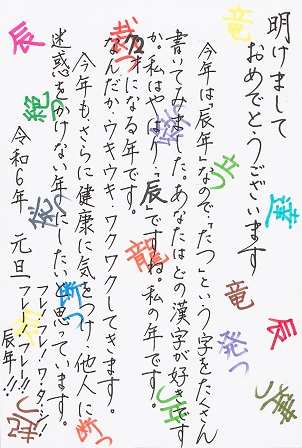 明けまして
おめでとうございます
今年は「辰年」なので「たつ」という字をたくさん
書いてみました。あなたはどの漢字が好きです
か。私はやはり「辰」ですね。私の年です。
72才になる年です。
なんだかウキウキ・ワクワクしてきます。
今年もさらに健康に気をつけ、他人に
迷惑をかけない年にしたいと思っています。
令和6年 元旦
フレ!フレ!ワ・タ・シ!!
フレー!フレー!!
辰年!!
竜
達
辰
建つ
立つ
竜
発つ
裁つ
龍
立つ
断つ
辰
絶つ
断つ
起つ